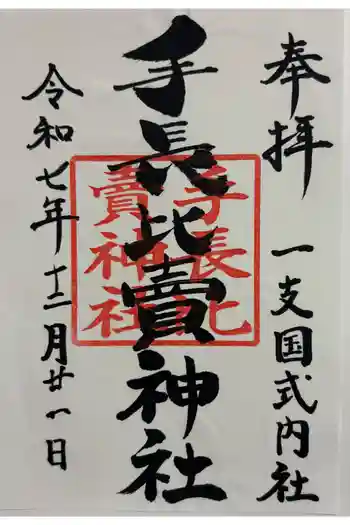 奉拝 一支国式内社
手長比賣神社
手長比
賣神社
令和七年十二月廿一日